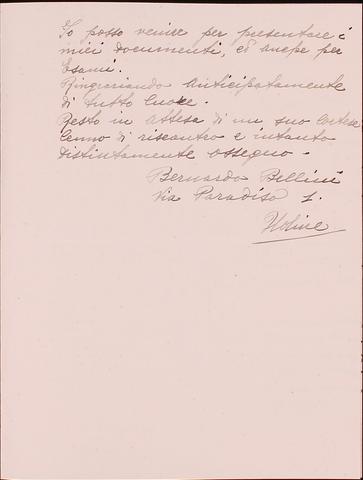 Io posso venire per presentare i
miei Documenti, ed anche per
Esami.
Ringraziando Anticipatamente
di tutto Cuore.
Resto in attesa di un suo Cortese
Cenno di riscontro e intanto
Distintamente ossequo.
Bernardo Bellini
Via Paradiso 1.
Udine